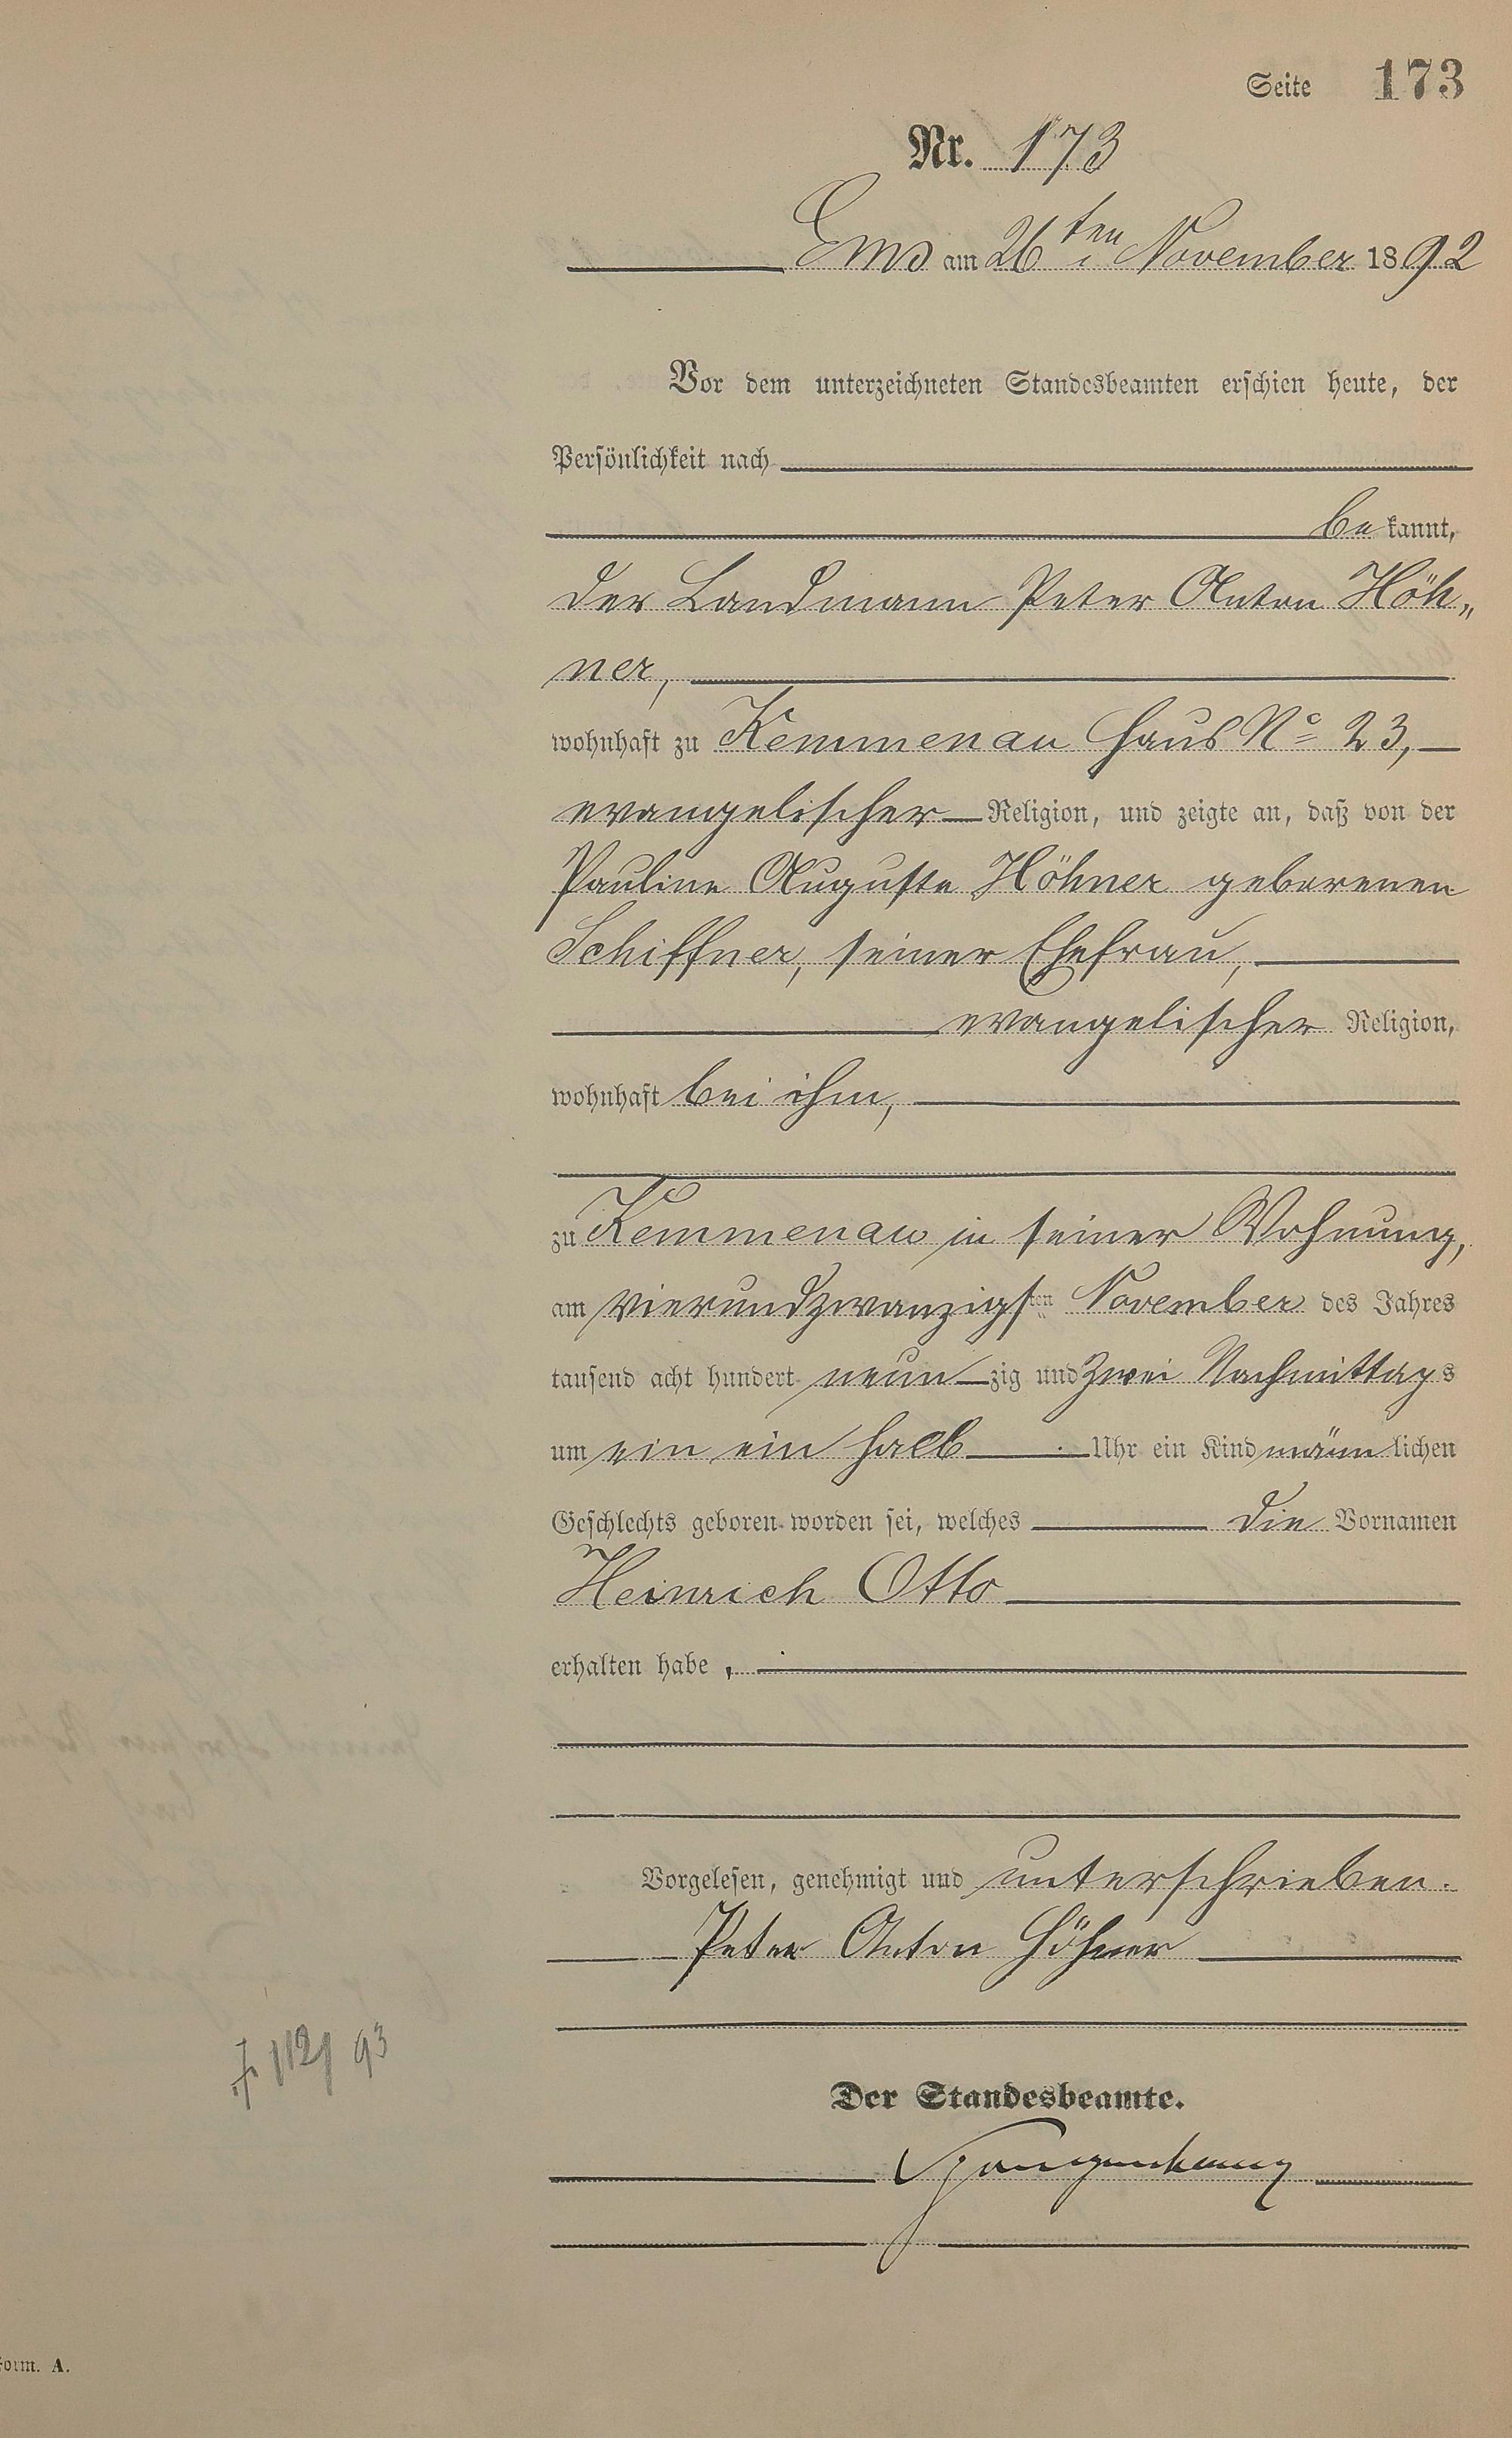 Seite 173
Nr. 173
Ems am 26ten November 1892
Vor dem unterzeichneten Standesbeamten erschien heute, der
Persönlichkeit nach
bekannt,
der Landmann Peter Anton Höh„
ner,
wohnhaft zu Kemmenau Haus No 23,
evangelischer Religion, und zeigte an, daß von der
Pauline Auguste Höhner geborenen
Schiffner, seiner Ehefrau,
evangelischer Religion,
wohnhaft bei ihm,
zu Kemmenau in seiner Wohnung,
am vierundzwanzigsten November des Jahres
tausend acht hundert neunzig und zwei Nachmittags
um ein ein halb Uhr ein Kind männlichen
Geschlechts geboren worden sei, welches die Vornamen
Heinrich Otto
erhalten habe,
Vorgelesen, genehmigt und unterschrieben.
Peter Anton Höhner
Der Standesbeamte.
Form. A.